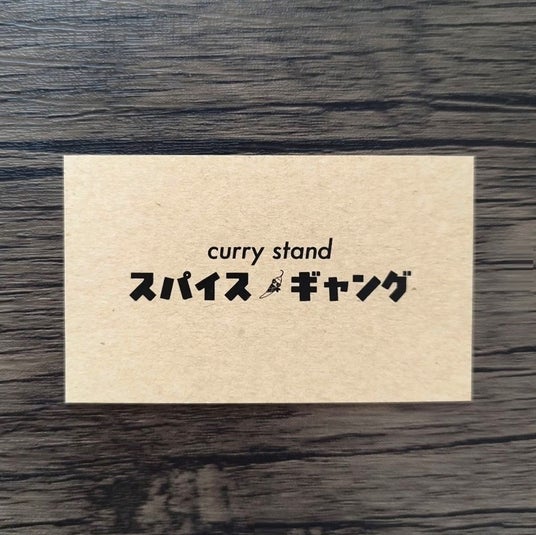 curry stand
スパイス ギャング